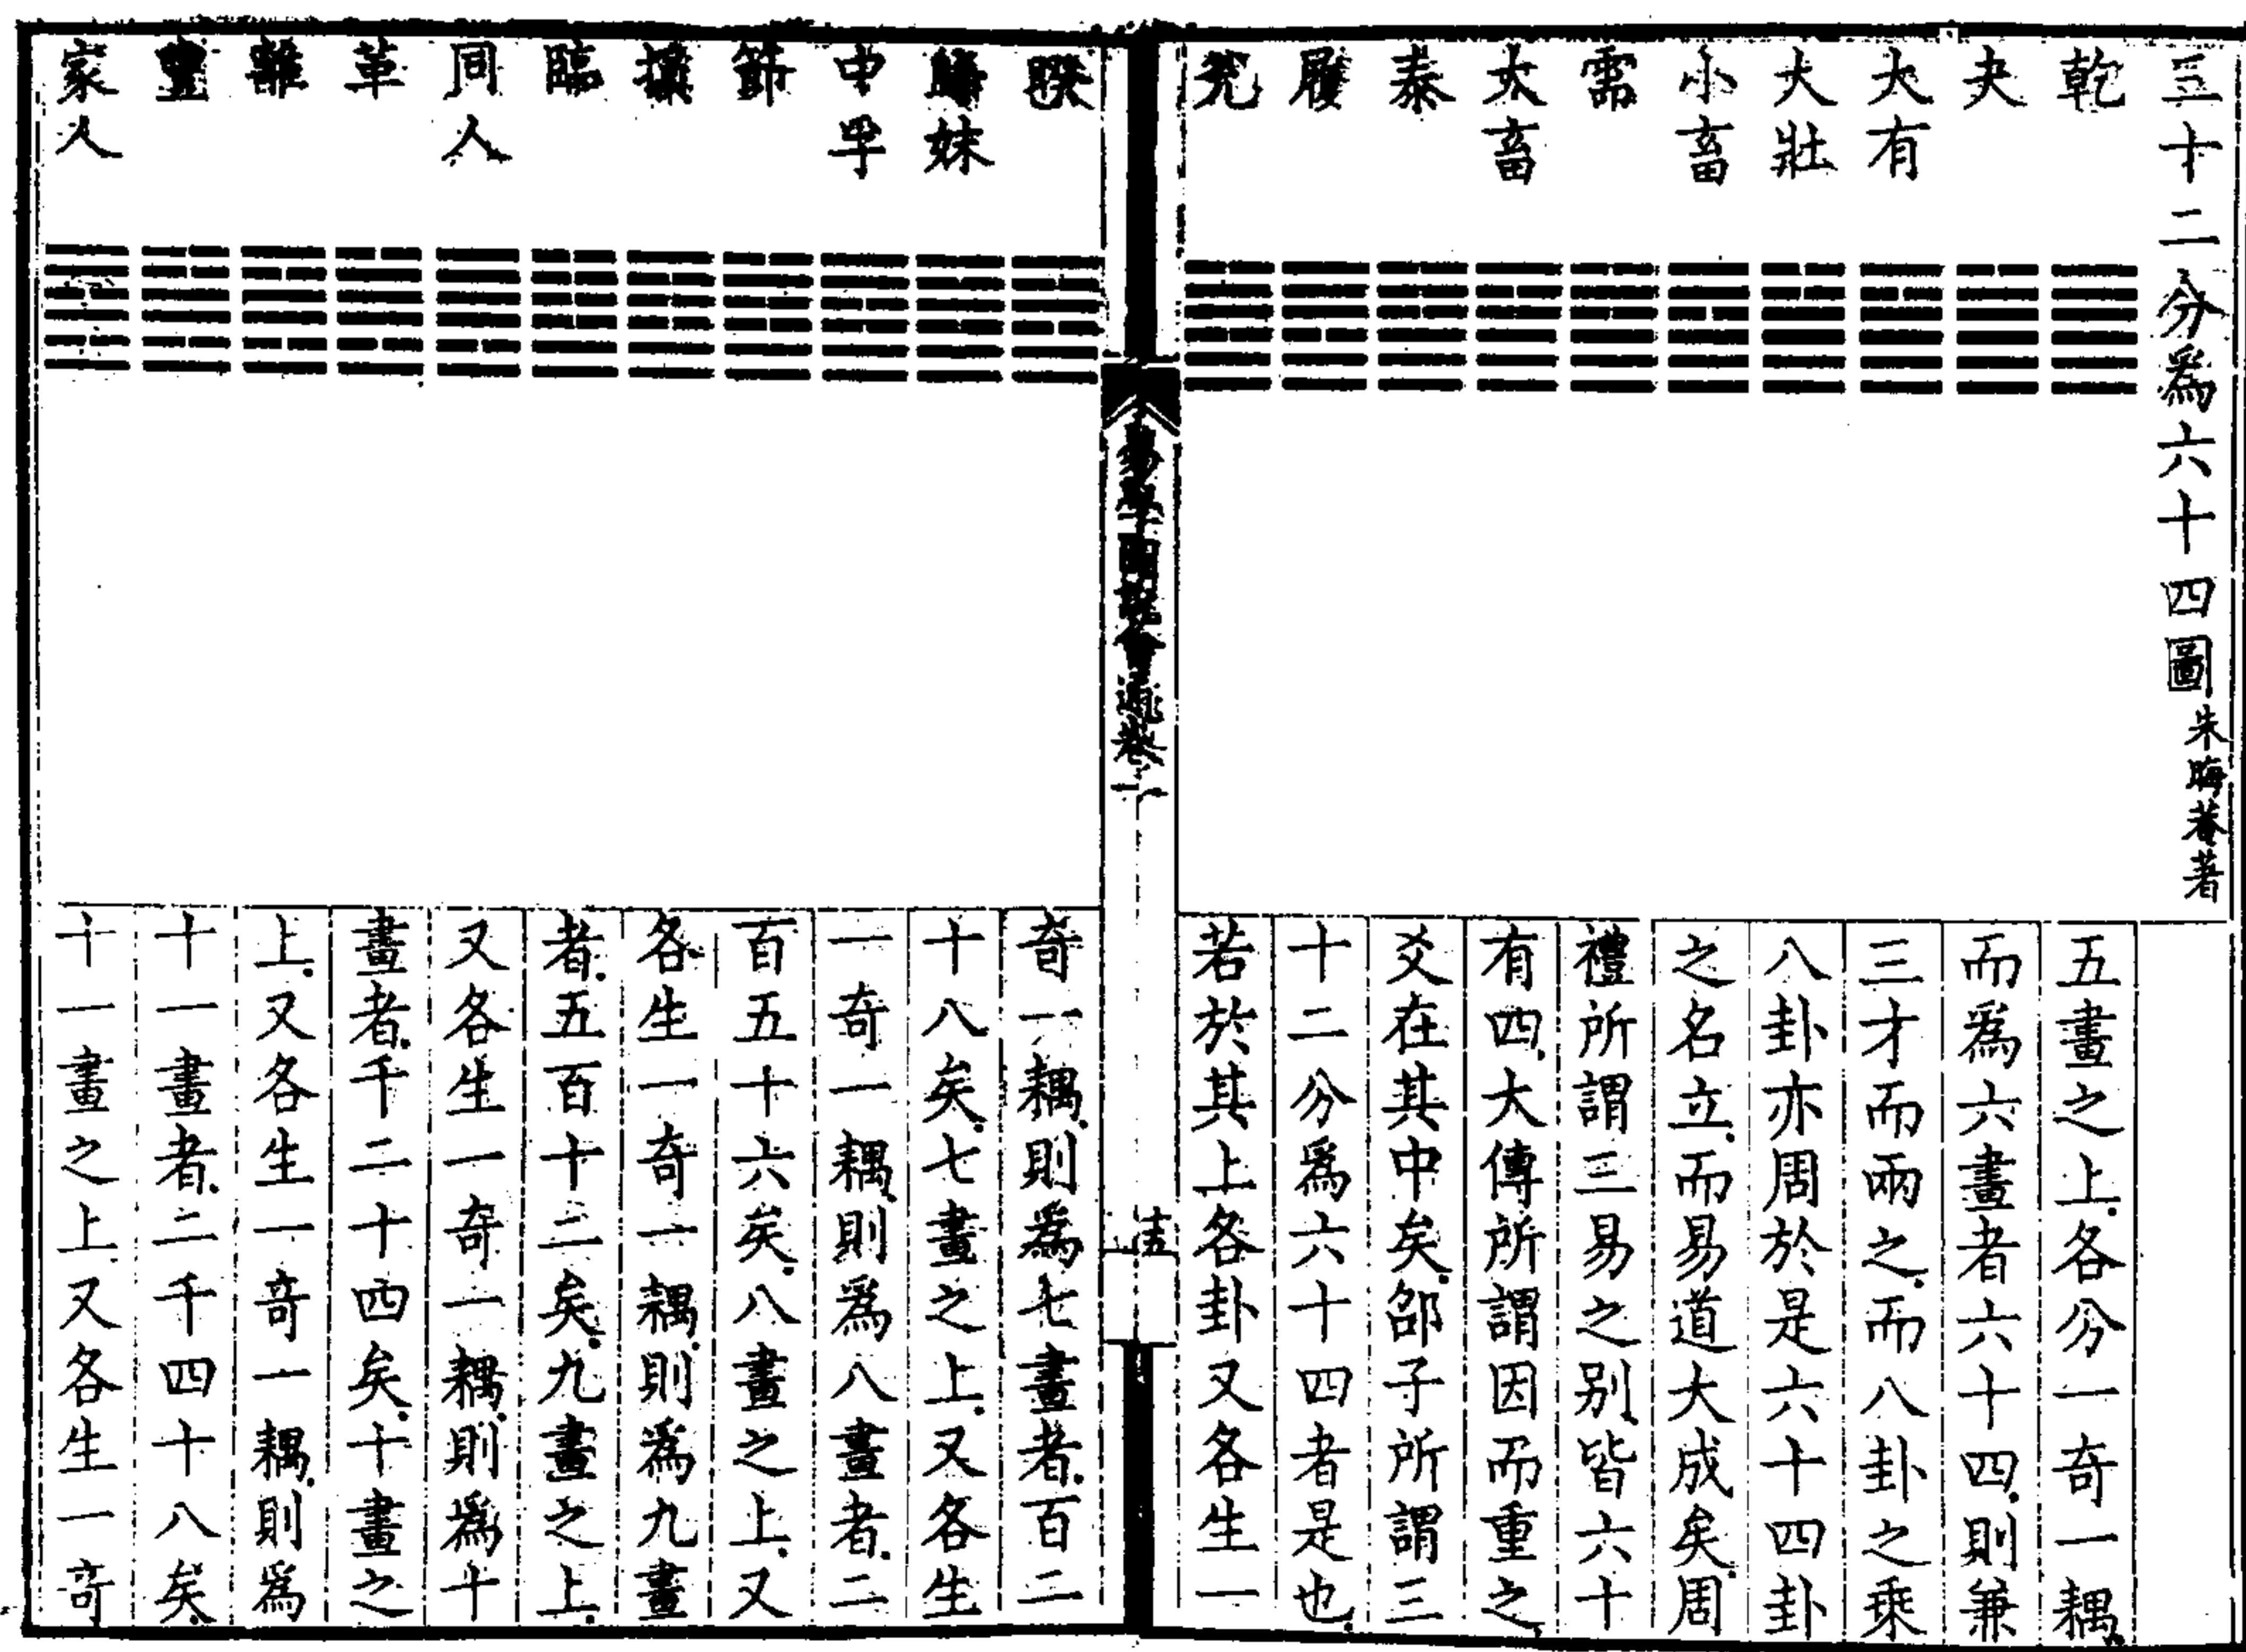 三十二分爲六十四圖朱晦菴著
乾
夬
大有
大壯
小畜
需
大畜
泰
履
兌
五畫之上各分一奇一耦
而爲六畫者六十四則兼
三才而兩之而八卦之乘
八卦亦周於是六十四卦
之名立而易道大成矣周
禮所謂三易之別皆六十
有四大傳所謂因而重之
爻在其中矣邵子所謂三
十二分爲六十四者是也
若於其上各卦又各生一
易學圖說會通卷二
睽
歸妹
中孚
節
損
臨
同人
革
離
豐
家人
奇一耦則爲七畫者百二
十八矣七畫之上又各生
一奇一耦則爲八畫者二
百五十六矣八畫之上又
各生一奇一耦則爲九畫
者五百十二矣九畫之上
又各生一奇一耦則爲十
畫者千二十四矣十畫之
上又各生一奇一耦則爲
十一畫者二千四十八矣
十一畫之上又各生一奇